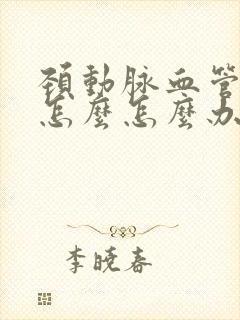 頚動脉血管
怎麼怎麼办
李晓春